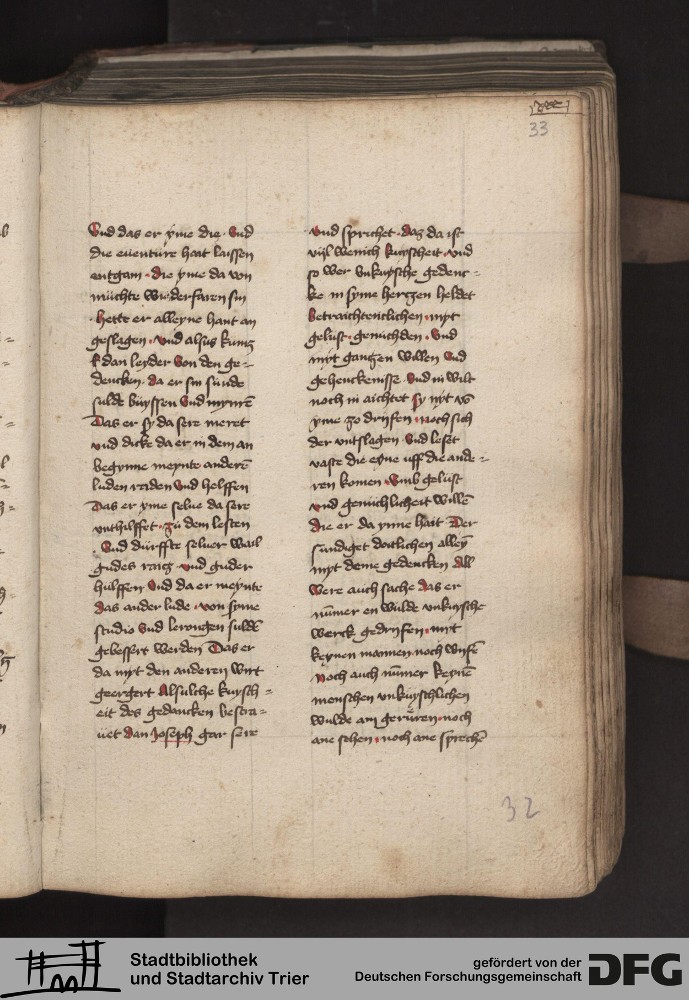 33
Vnd das er yme die · Vnd
die euenture hait laissen
entgain · die yme da von
müchte wiederfaren sin
· Hette er alleyne hant an
geslagen · vnd alsus kunig
dan leyder Von den ge-
dencken · da er sin sünde
sulde büyssen Vnd mynrē
Das er sy da sere meret
vnd dicke da er in dem an
begynne meynte anderē
luden raden Vnd helffen
Das er yme selue da sere
vnthilffet · zü dem lesten
· Vnd dürffte seluer wail
gudes raitz · vnd guder
hülffen Vnd da er meynte
das ander lude · von syme
studio Vnd lerongen suldē
gebessert werden Das er
da myt den anderen wirt
geergert Alsulche kuysch-
eit des gedancken besra-
uet dan Joseph gar sere
vnd sprichet · daz da ist
vijl wenich kuyscheit · vnd
so wer vnkuysche gedenc-
ke in syme hertzen heldet
betraichtentlichen · myt
gelust · genuchden · Vnd
myt gantzen willen Vnd
gehenckenisse · Vnd in wilt
noch in aichtet sy nyt vō
yme zo drijfen · noch sich
der vntslagen · Vnd leset
vaste die eyne uff die ande-
ren komen · Vmb gelust
vnd genüchlicheit willē
die er da ynne hait Der
sündiget doitlichen alley
myt deme gedencken All
were auch sache das er
nūmer en wulde vnkuysche
werck gedrijfen · mit
keynen mannen noch wijfē
noch auch nūmer keynē
menschen vnkuyschlichen
wulde an gerüren · noch
ane sehen · noch ane sprechē
32
Stadtbibliothek
und Stadtarchiv Trier
gefördert von der
Deutschen Forschungsgemeinschaft
DFG